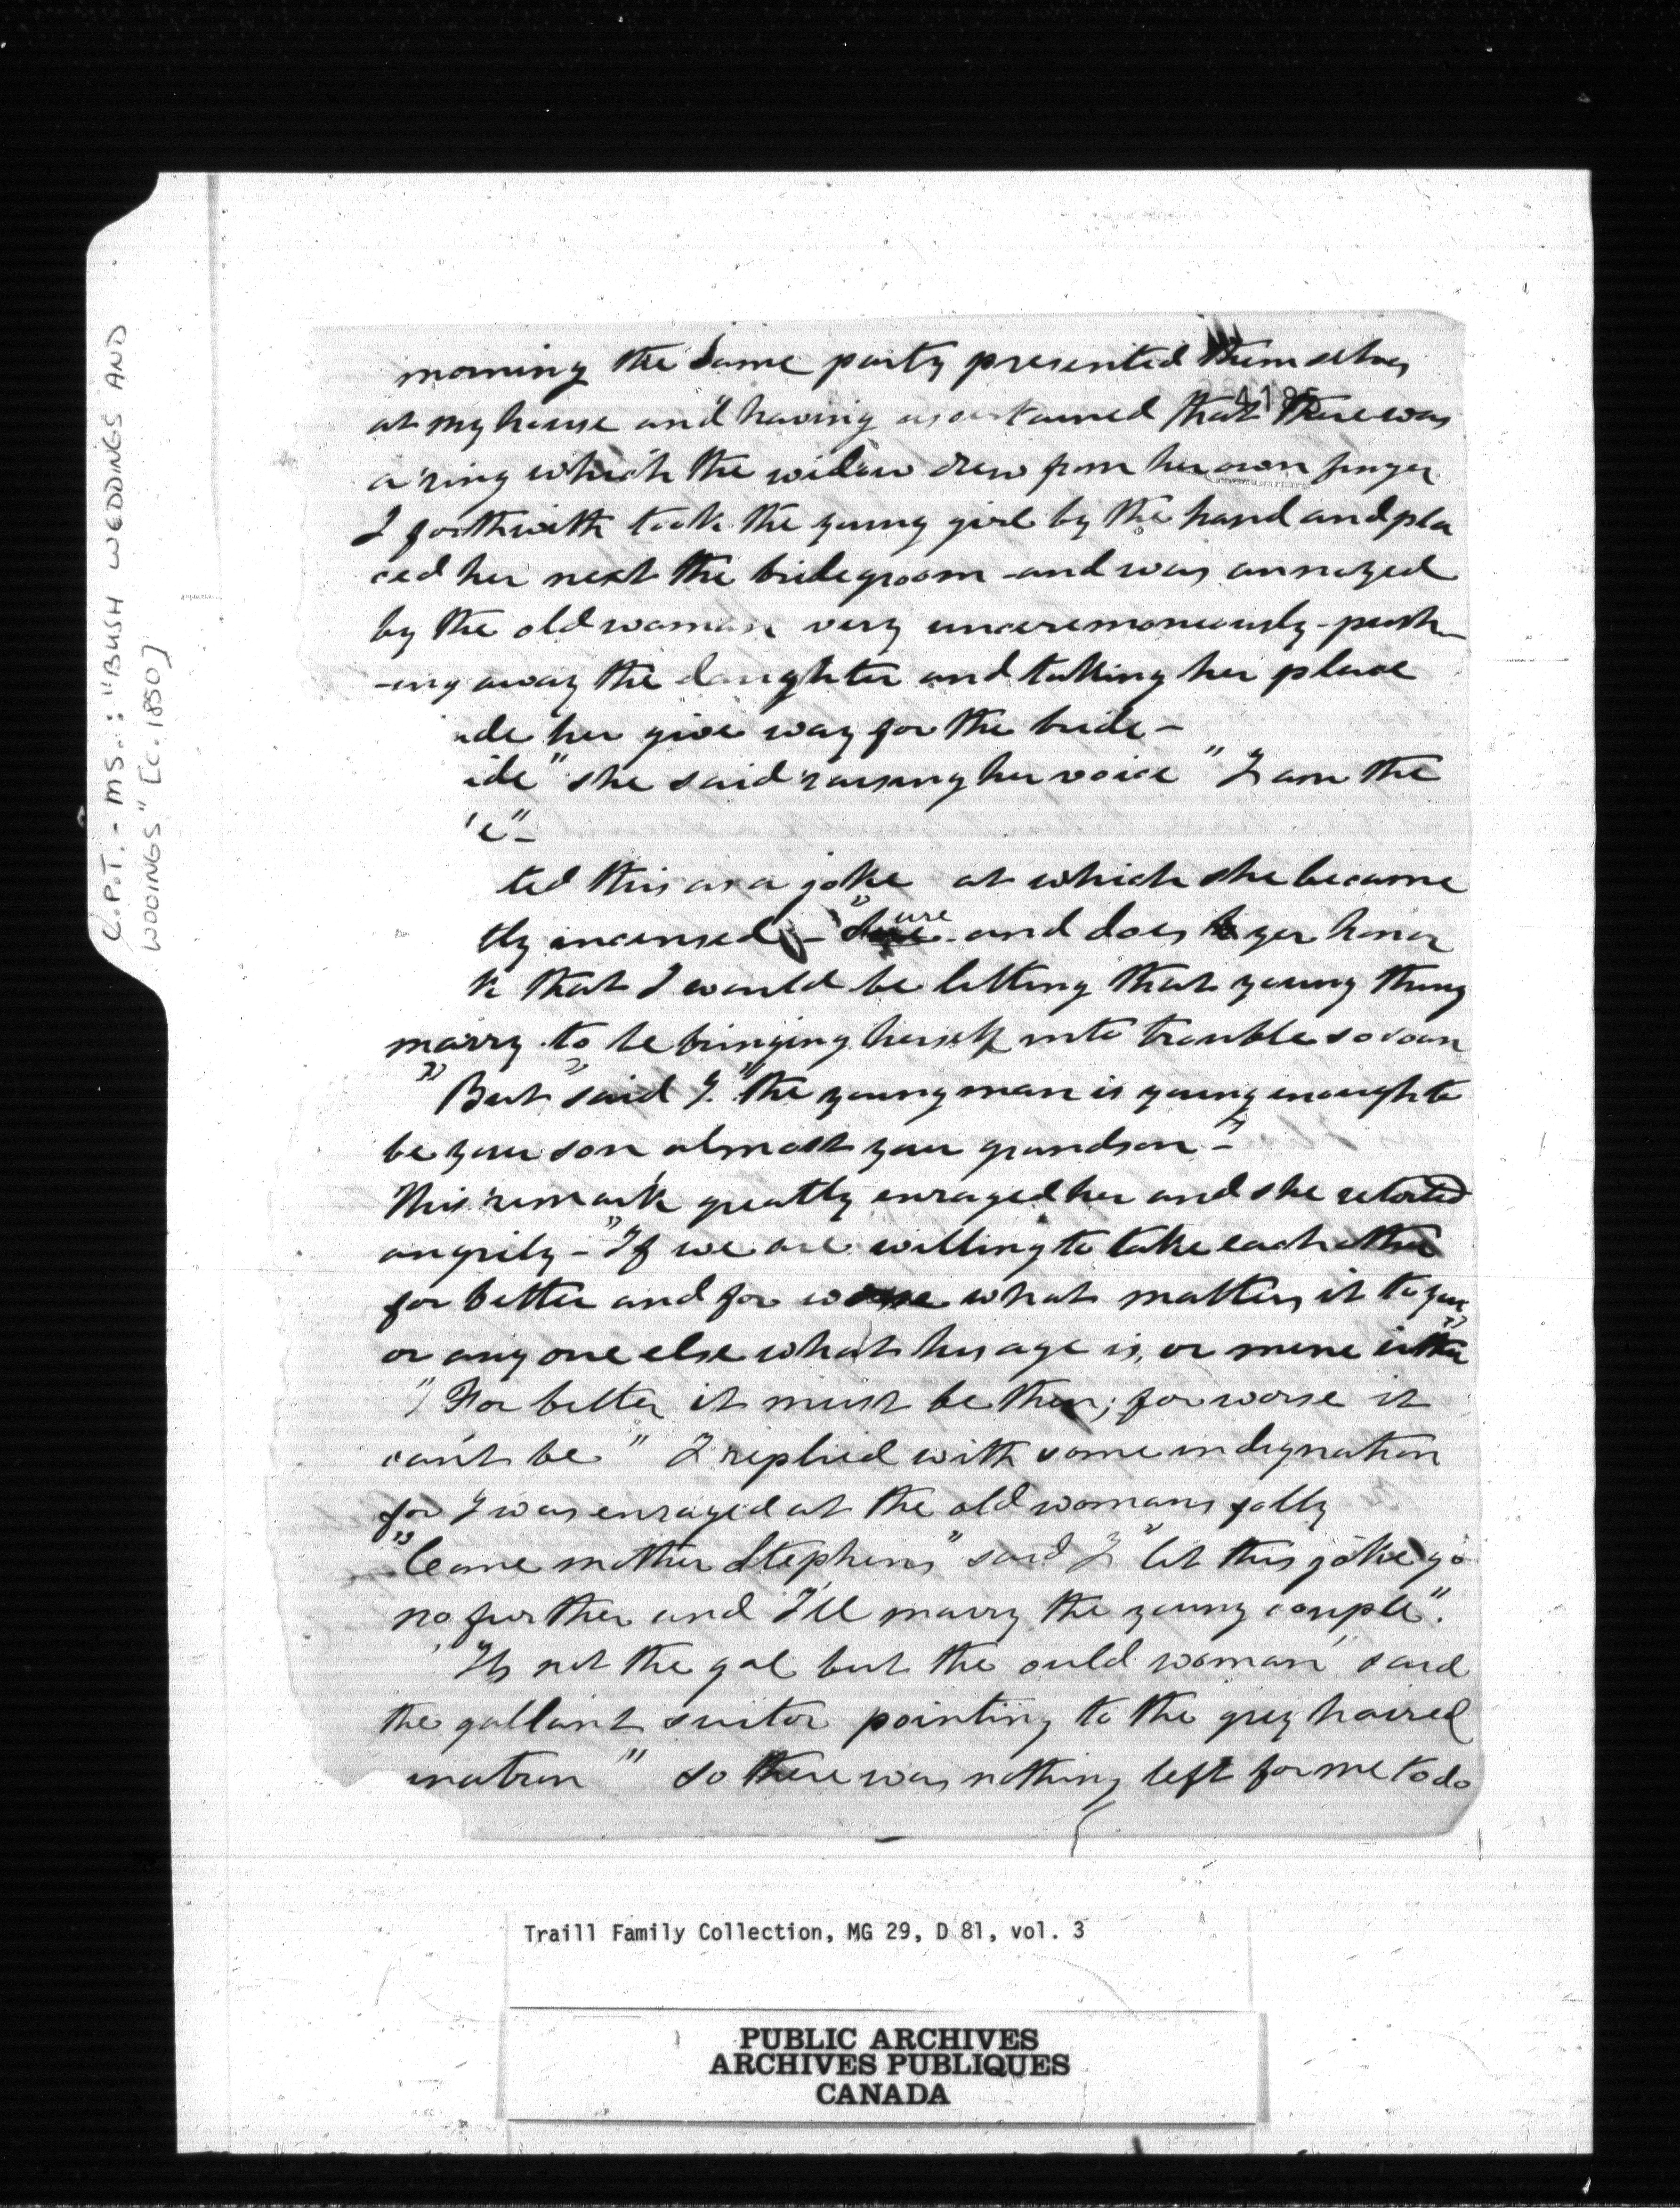 C.P.T. - MS.: "BUSH WEDDINGS AND
WOOINGS" [c. 1850]
morning the same party presented themselves
4186
at my house and having ascertained that there was
a ring which the widow drew from her own finger
I forthwith took the young girl by the hand and pla
ced her next the bridegroom - and was annoyed
by the old woman very unceremoneously - push-
-ing away the daughter and takking her place
ade her give way for the bride -
ide" she said raising her voice "I am the
e" -
ted this as a joke at which she became
tly incensed - "Sure and does yer honor
k that I would be letting that young thing
marry to be bringing herself into trouble so soon
"But" said I. "the young man is young enough to
be your son almost your grandson" -
This remark greatly enraged her and she retorted
angrily - "If we are willing to take each other
for better and for worse what matters it to you
or any one else what his age is, or mine either"
"For better it must be then; for worse it
can't be" I replied with some indignation
for I was enraged at the old womans folly
"Come mother Stephens" said I "let this joke go
no further and I'll marry the young couple".
"Its not the gal but the ould woman' said
the gallant suitor pointing to the grey haired
matron" so there was nothing left for me to do
Traill Family Collection, MG 29, D 81, vol. 3
PUBLIC ARCHIVES
ARCHIVES PUBLIQUES
CANADA